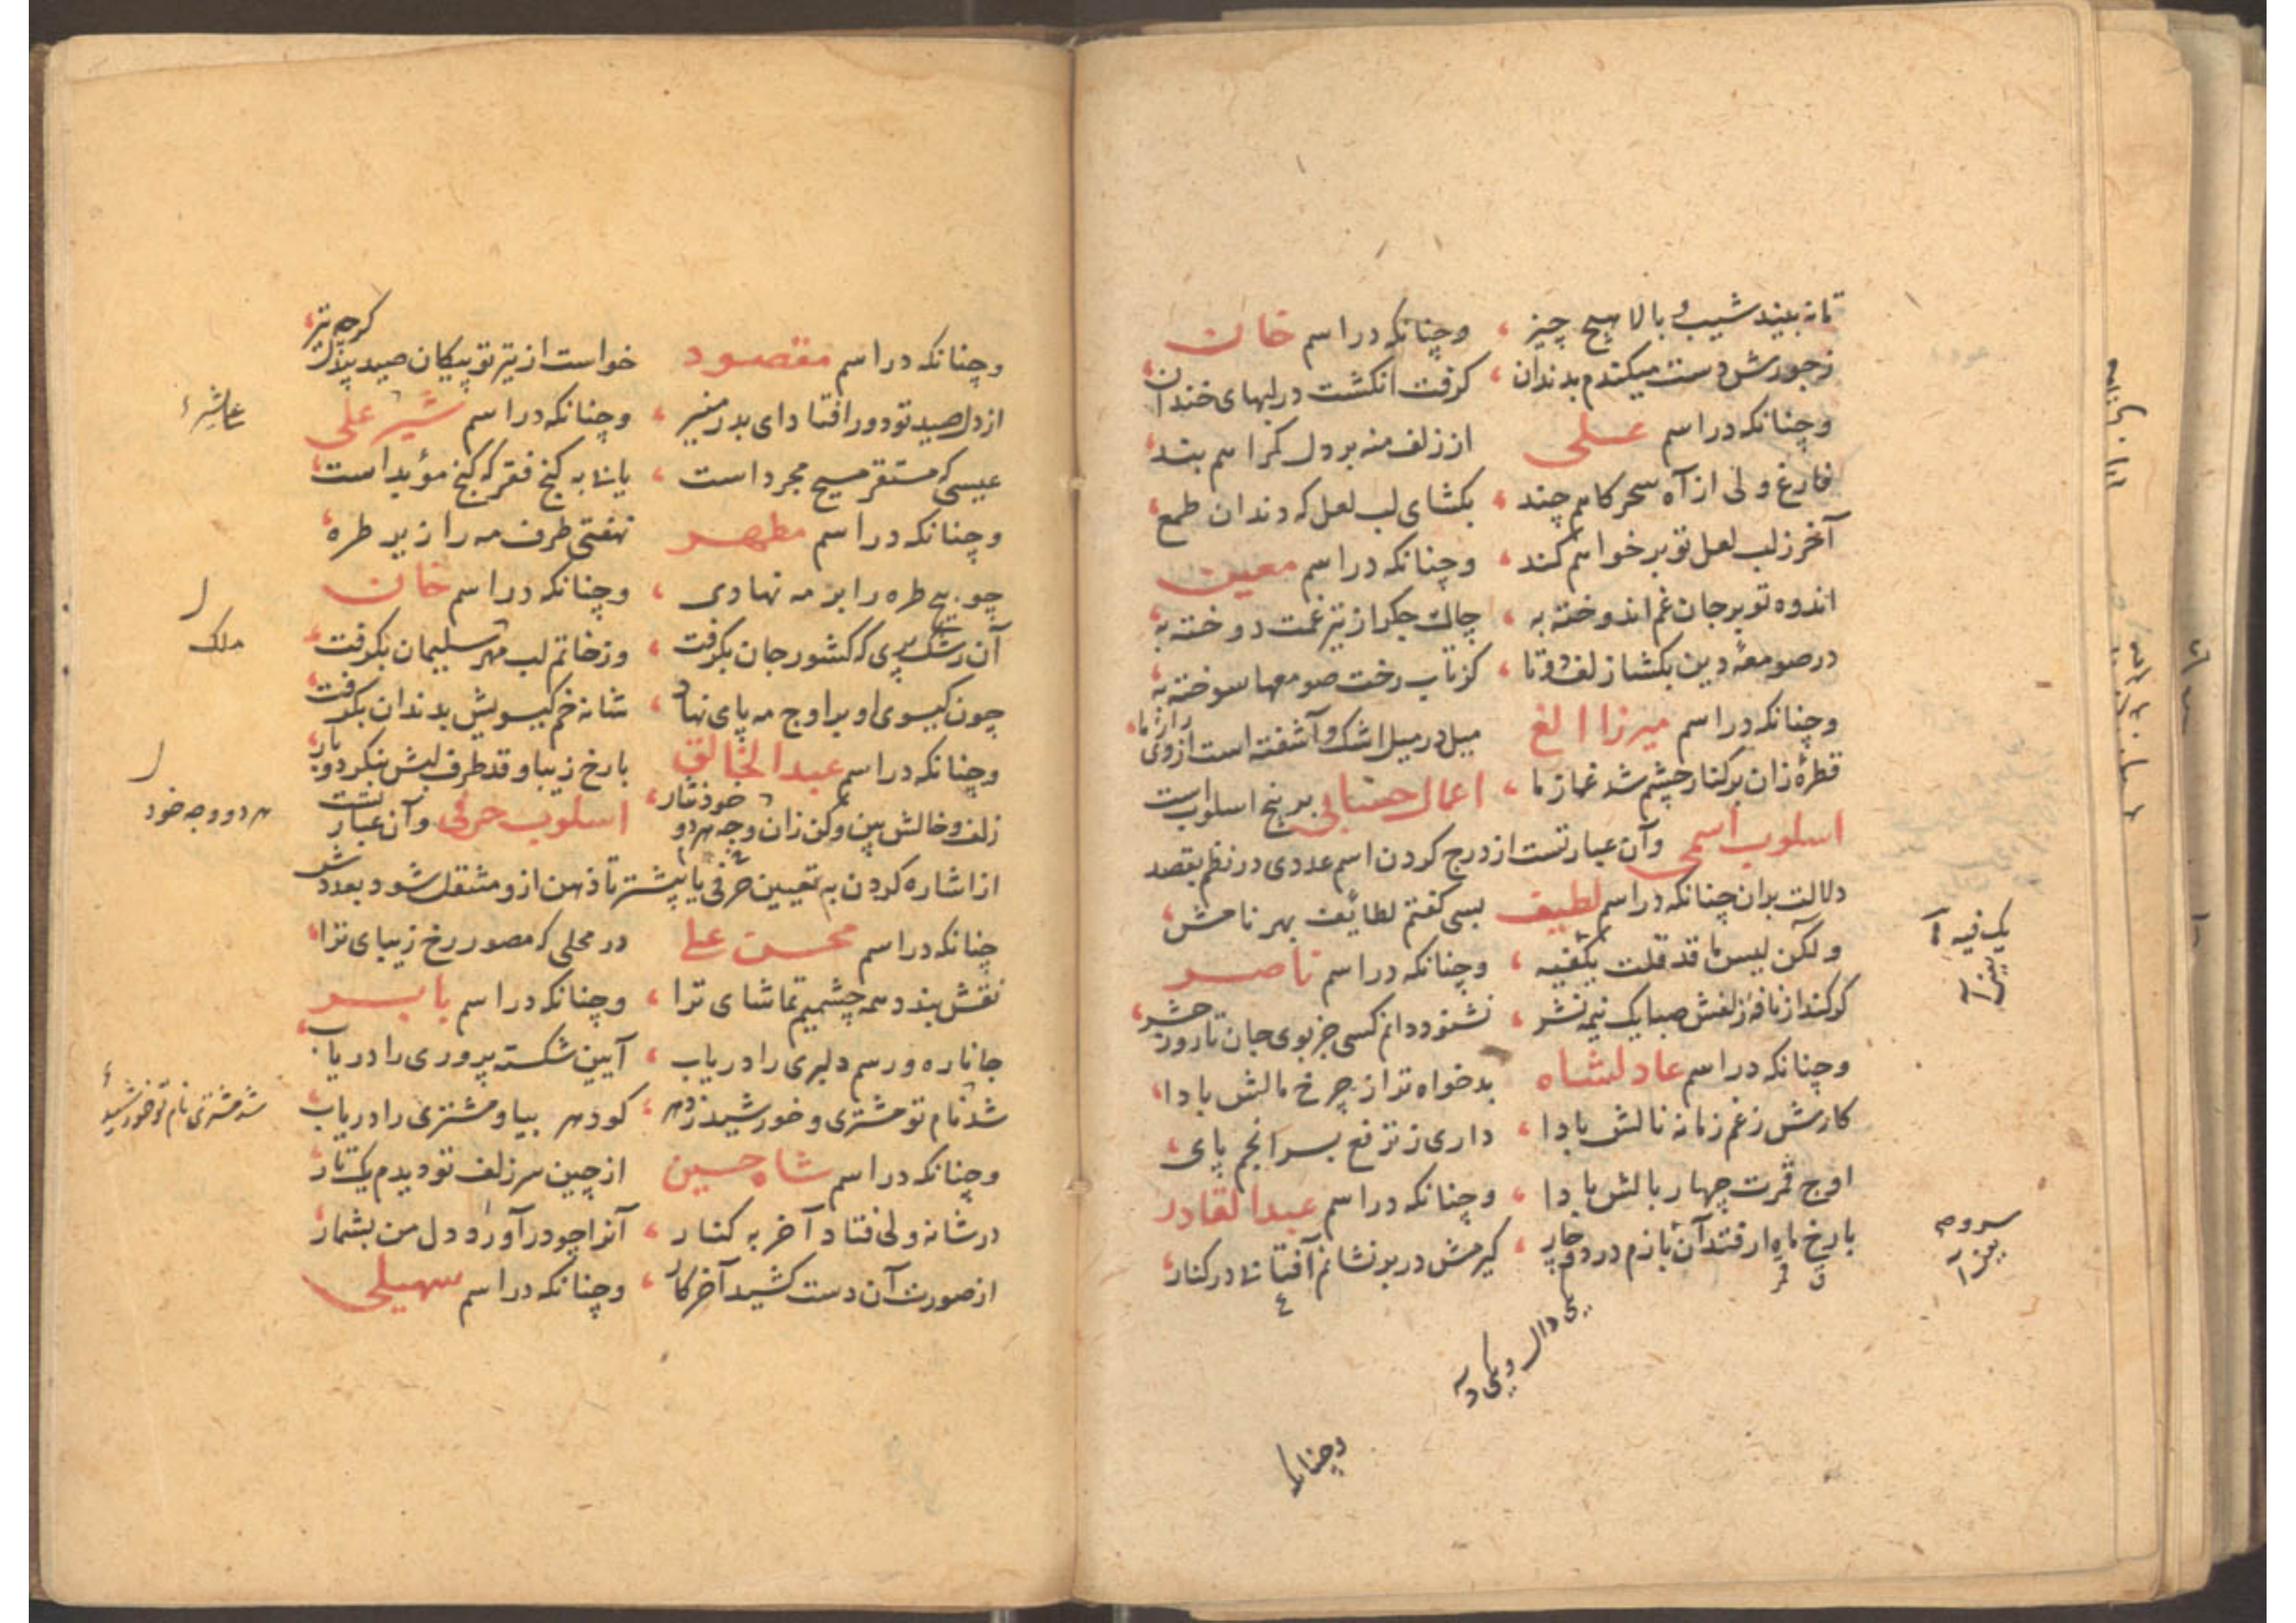 تا نه بیند شیب و بالا هیچ چیز ، وچنانکه در اسم خان
زجورش دست میکندم بدندان ، کرفت انکشت در لبهای خندان
وچنانکه در اسم علی از زلف منه بر دل کمراهم بند
فارغ ولی از آه سحرکاهم چند ، بکشای لب لعل که دندان طمع
آخر ز لب لعل تو بر خواهم کند ، وچنانکه در اسم معین
اندوه تو بر جان غم اندوخته به ، چاک جکر از تیر غمت دوخته به
در صومعهٔ دین بکشا زلف دوتا ، کز تاب رخت صومعها سوخته به
وچنانکه در اسم میرزا الغ میل در میل اشک و آشفته است از وی راز ما
قطرهٔ زان بر کنار چشم شد غماز ما ، اعمال حسابی بر پنج اسلوب است
اسلوب اسمی وآن عبارتست از درج کردن اسم عددی در نظم بقصد
دلالت بران چنانکه در اسم لطیف بسی کفتم لطائف بهر نامش
ولکن لیس ما قد قلت یکفیه ، وچنانکه در اسم ناصر
کر کند از نافهٔ زلفش صبا یک نیمه نشر ، نشنود دانم کسی جز بوی جان تا روز حشر
وچنانکه در اسم عادلشاه بدخواه ترا ز چرخ مالش بادا
کارش ز غم زمانه نالش بادا ، داری ز ترفع بسر انجم پای
اوج قمرت چهار بالش بادا ، وچنانکه در اسم عبدالقادر
با رخ ماه ار فتد آن بازم در دو چار ، کیرمش در بر نشانم آفتابی در کنار
یک فیه
یعنی
سروم
یعنی
یکی دال ویکی ده
وچنانکه
وچنانکه در اسم مقصود خواست از تیر تو پیکان صید پذل کرچه تیر
از دل صید تو دور افتاد ای بدر منیر ، وچنانکه در اسم شیر علی
عیسی که مستقر مسیح مجرد است ، یابی به کنج فقر که کنج مؤبد است
وچنانکه در اسم مطهر نهفتی طرف مه را زیر طره
چو پیچ طره را بر مه نهادی ، وچنانکه در اسم خان
آن رشک پری که کشور جان بکرفت ، وز خاتم لب مهر سلیمان بکرفت
چون کیسوی او بر اوج مه پای نهاد ، شانه خم کیسویش بدندان بکرفت
وچنانکه در اسم عبدالخالق با رخ زیبا و قد طرف لبش بنکر دو بار
زلف وخالش بین وکن زان وجه هر دو خود نثار ، اسلوب حرفی وآن عبارتست
از اشاره کردن به تعیین حرفی یا بیشتر تا ذهن ازو منتقل شود بعددش
چنانکه در اسم محسن علی در محلی که مصور رخ زیبای ترا
نقش بندد همه چشمیم تماشای ترا ، وچنانکه در اسم بابر
جانا ره و رسم دلبری را دریاب ، آیین شکسته پروری را دریاب
شد نام تو مشتری و خورشید ز مهر ، کو دهر بیا و مشتری را دریاب
وچنانکه در اسم شاه حسین از چین سر زلف تو دیدم یک تار
در شانه ولی فتاد آخر به کنار ، آنرا چو درآورد دل من بشمار
از صورت آن دست کشید آخر کار ، وچنانکه در اسم سهیلی
ملک
هر دو وجه خود
شد مشتری نام تو خورشید